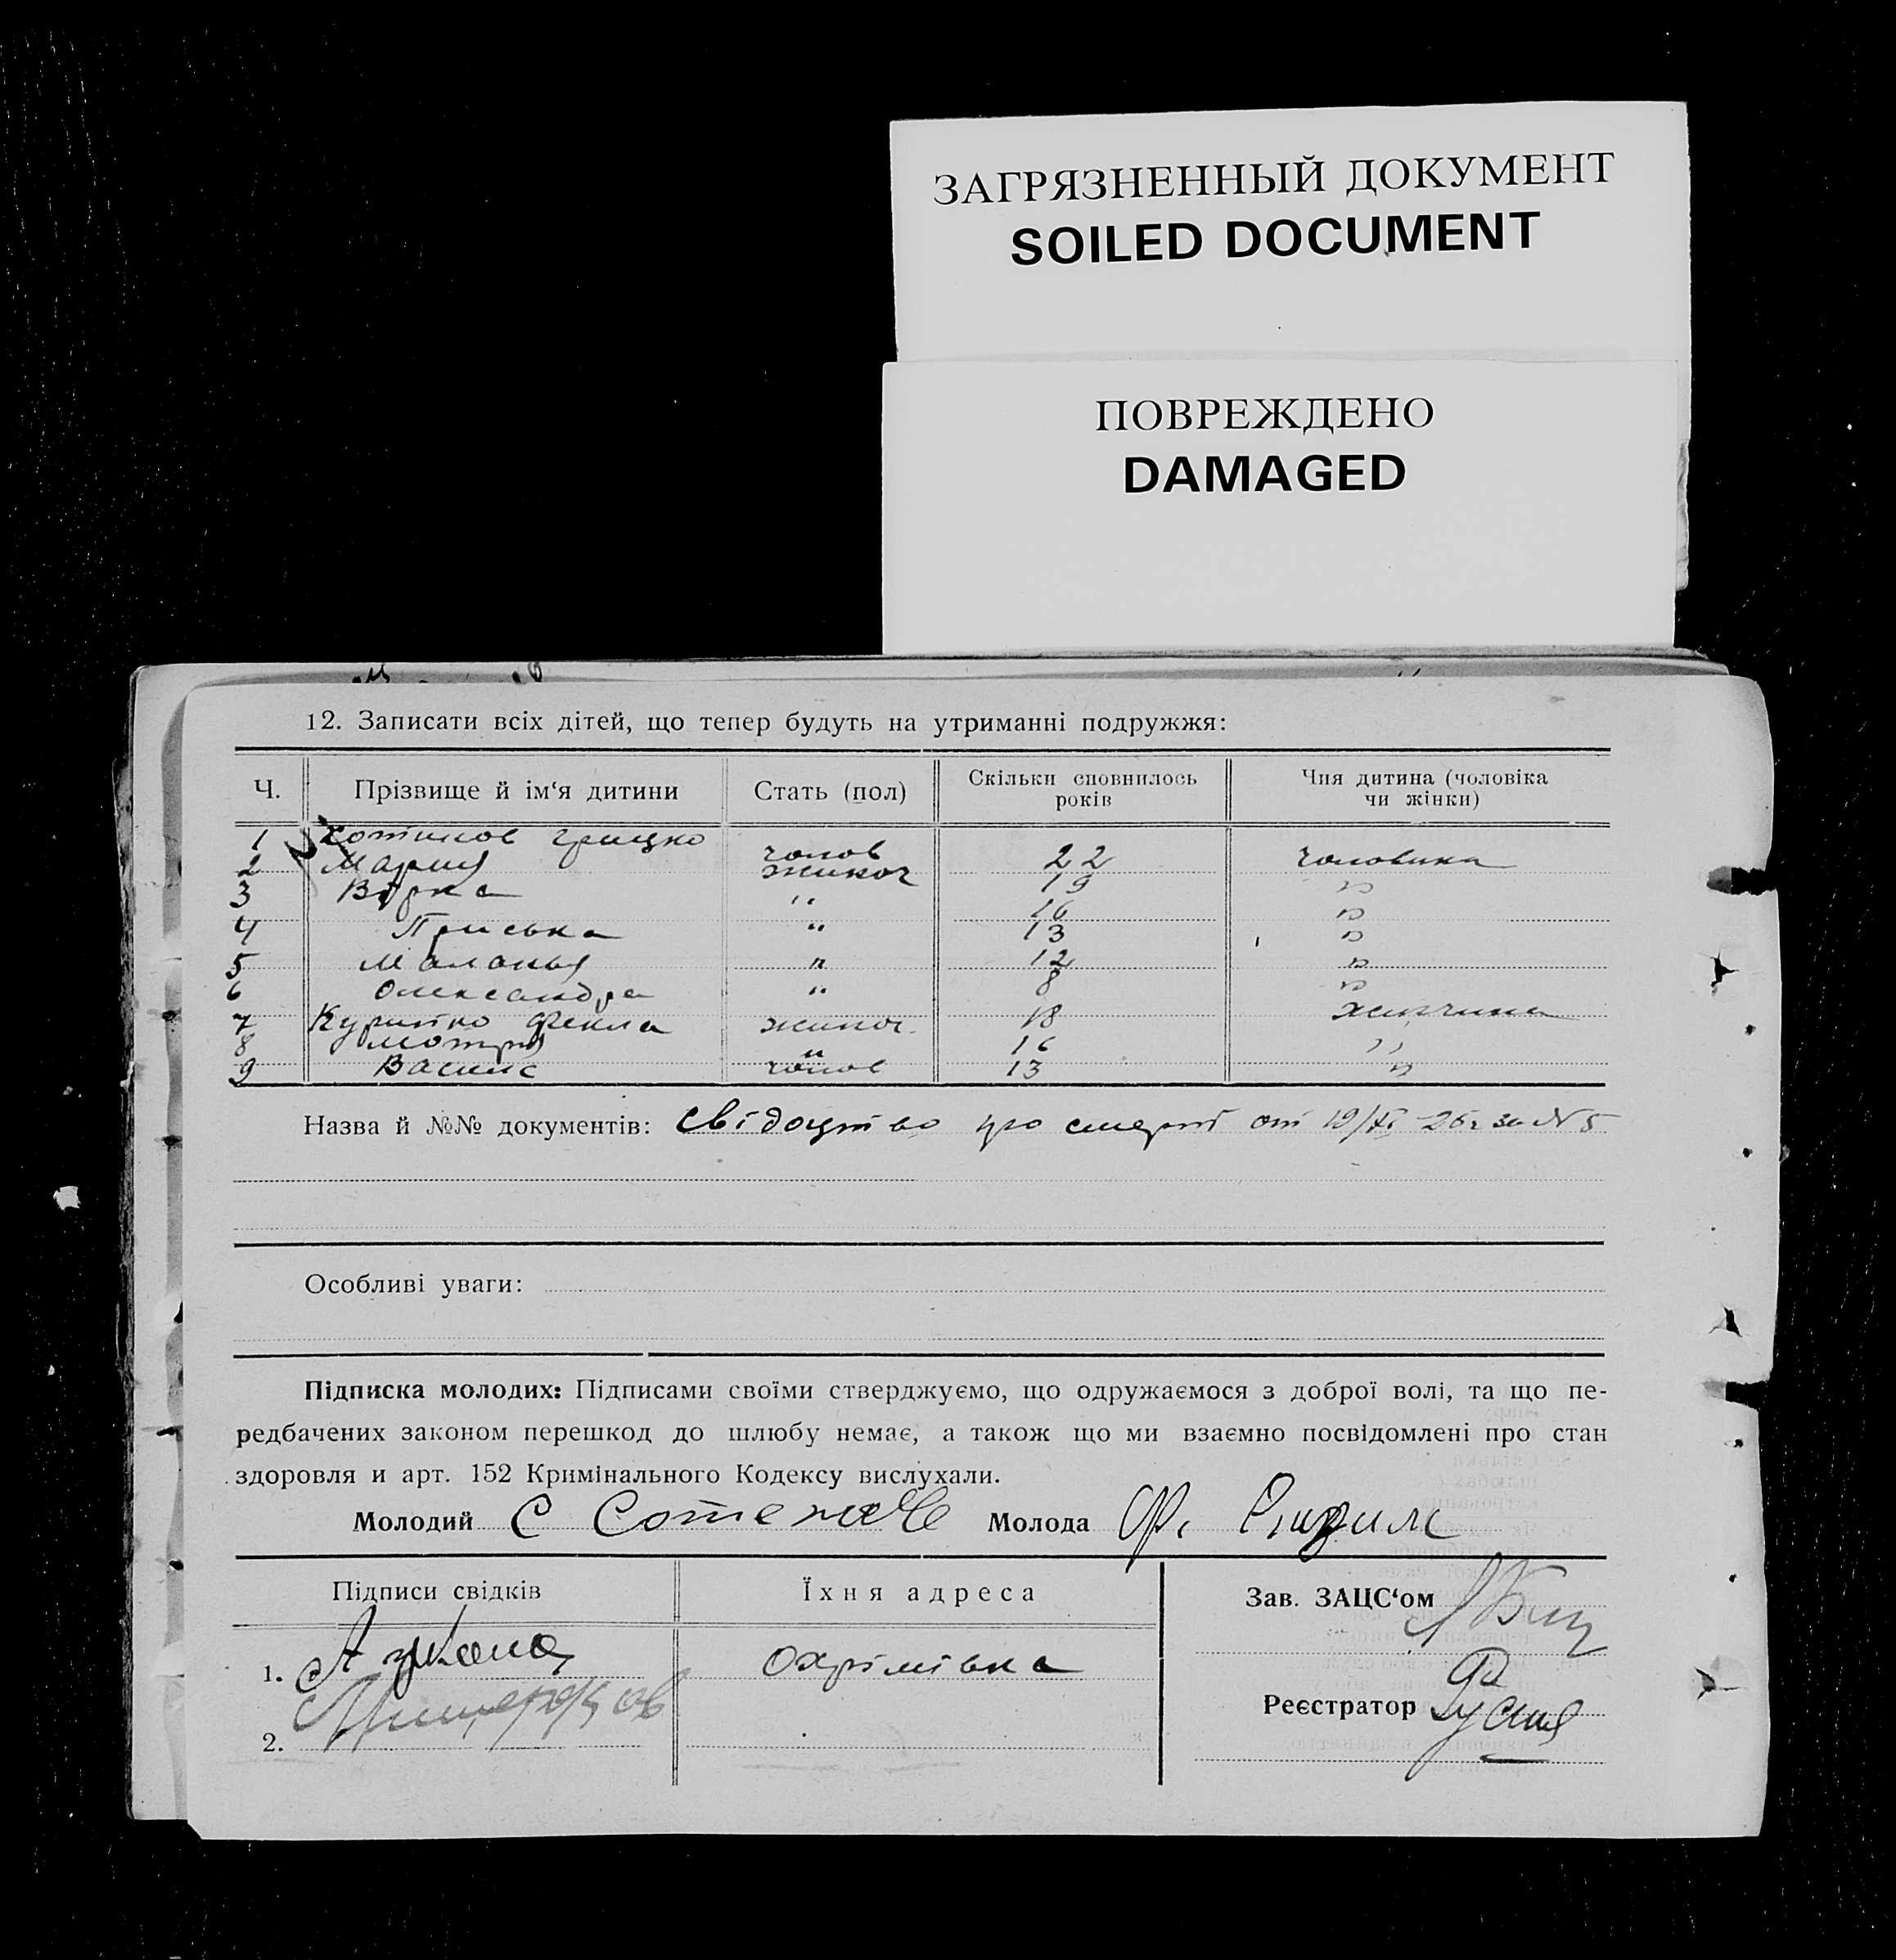 ЗАГРЯЗНЕННЫЙ ДОКУМЕНТ
SOILED DOCUMENT
ПОВРЕЖДЕНО
DAMAGED
12. Записати всіх дітей, що тепер будуть на утриманні подружжя:
Ч. Прізвище й ім‘я дитини Стать (пол) Скільки сповнилось років Чия дитина (чоловіка чи жінки)
1 Грицко чолов 22 чоловика
2 Мария жиноч 19 "
3 Вірка " 16 "
4 Приська " 13 "
5 Маланья " 12 "
6 Олександра " 8 "
7 Фекла жиноч. 18
8 Мотря " 16 "
9 Василь чолов 13 "
Назва й №№ документів: свідоцтво про смерть от 19/XI-26 г за N 5
Особливі уваги:
Підписка молодих: Підписами своїми стверджуємо, що одружаємося з доброї волі, та що пе-
редбачених законом перешкод до шлюбу немає, а також що ми взаємно посвідомлені про стан
здоровля и арт. 152 Кримінального Кодексу вислухали.
Молодий С Молода
Підписи свідків Їхня адреса Зав. ЗАЦС‘ом
1. Охрімівка
Реєстратор
2.